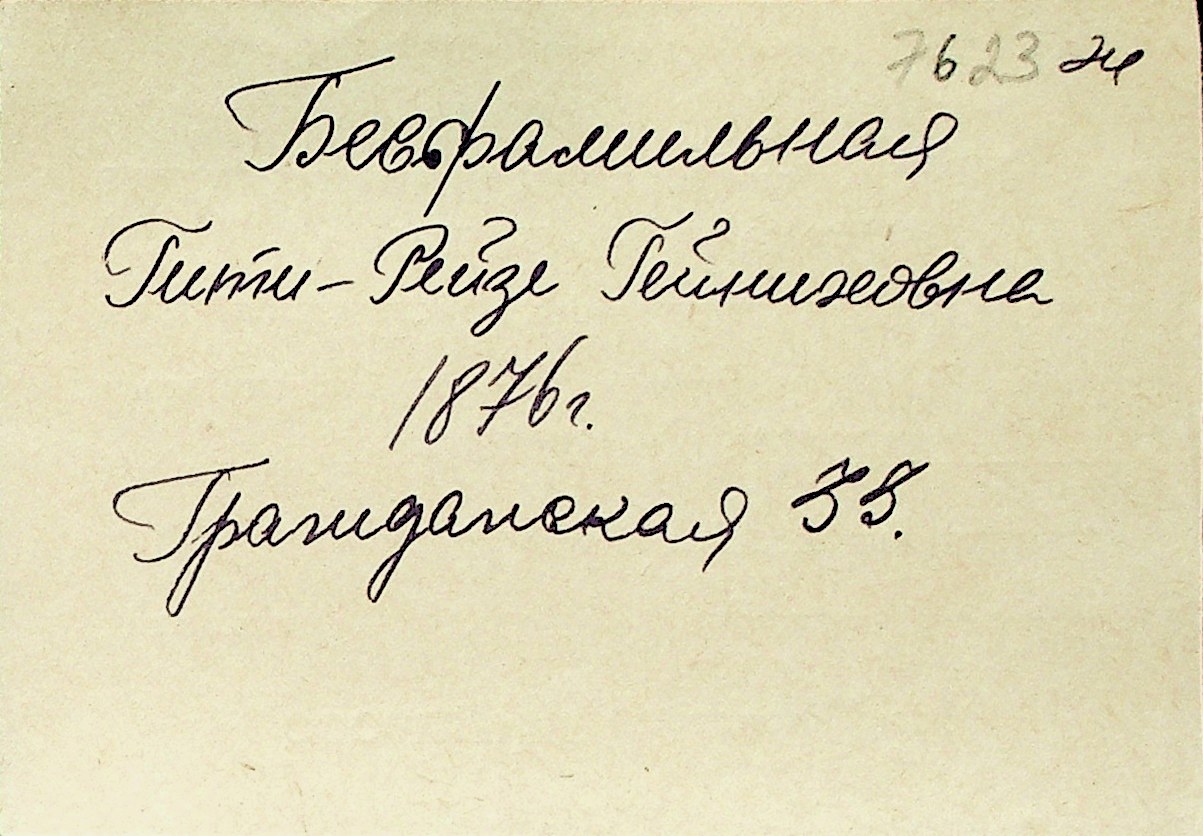 7623 ж
Бесфамильная
Гити-Рейзе Гейниховна
1876г.
Гражданская 33.